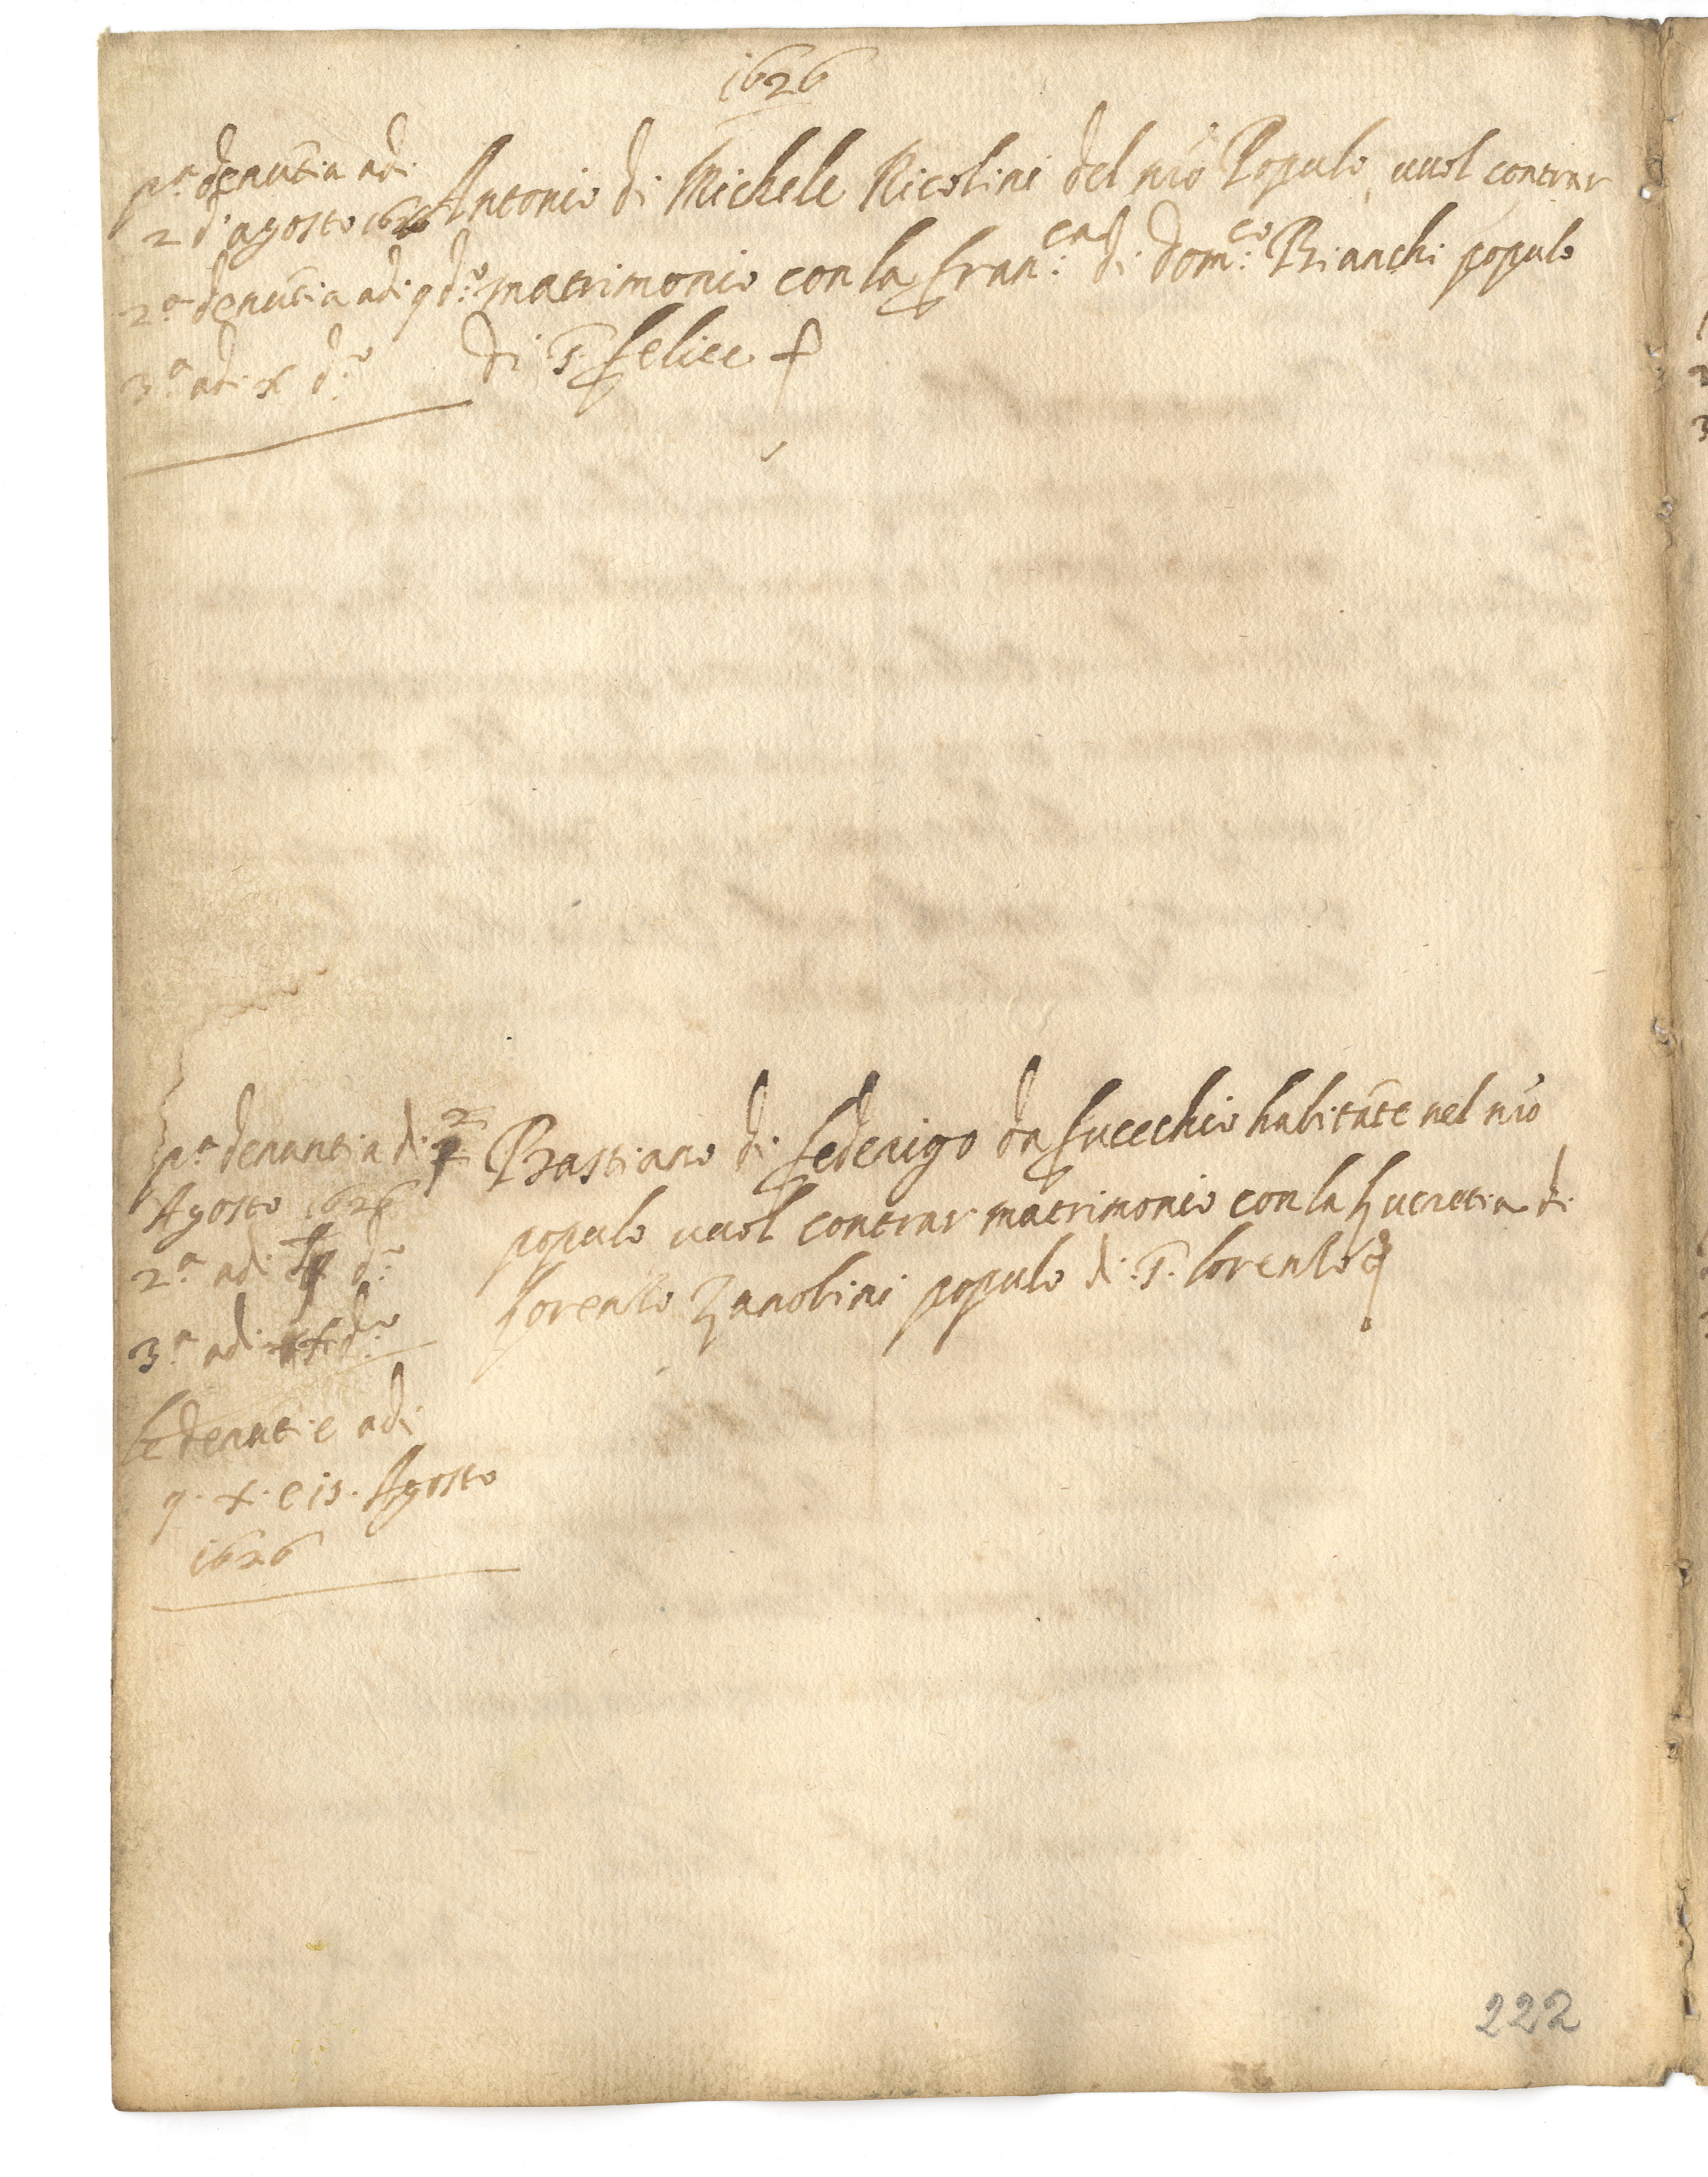 1626
p.ª denũtia adi
2 d'agosto 1626
2.ª denũtia adi 9 d.º
3.ª adi x d.º
Antonio di Michele Nicolini del nr̃o Populo vuol contrar
matrimonio con la Fran.ca di Dom.co Bianchi populo
di S. Felice
p.ª denuntia di 2
Agosto 1626
2.ª adi d.º
3.ª adi d.º
le denũtie adi
9. x. e 15. Agosto
1626
Bastiano di Federigo da Fucechio habitãte nel nr̃o
populo vuol contrar matrimonio con la Lucretia di
Lorenzo Zanobini populo di S. Lorenzo
222